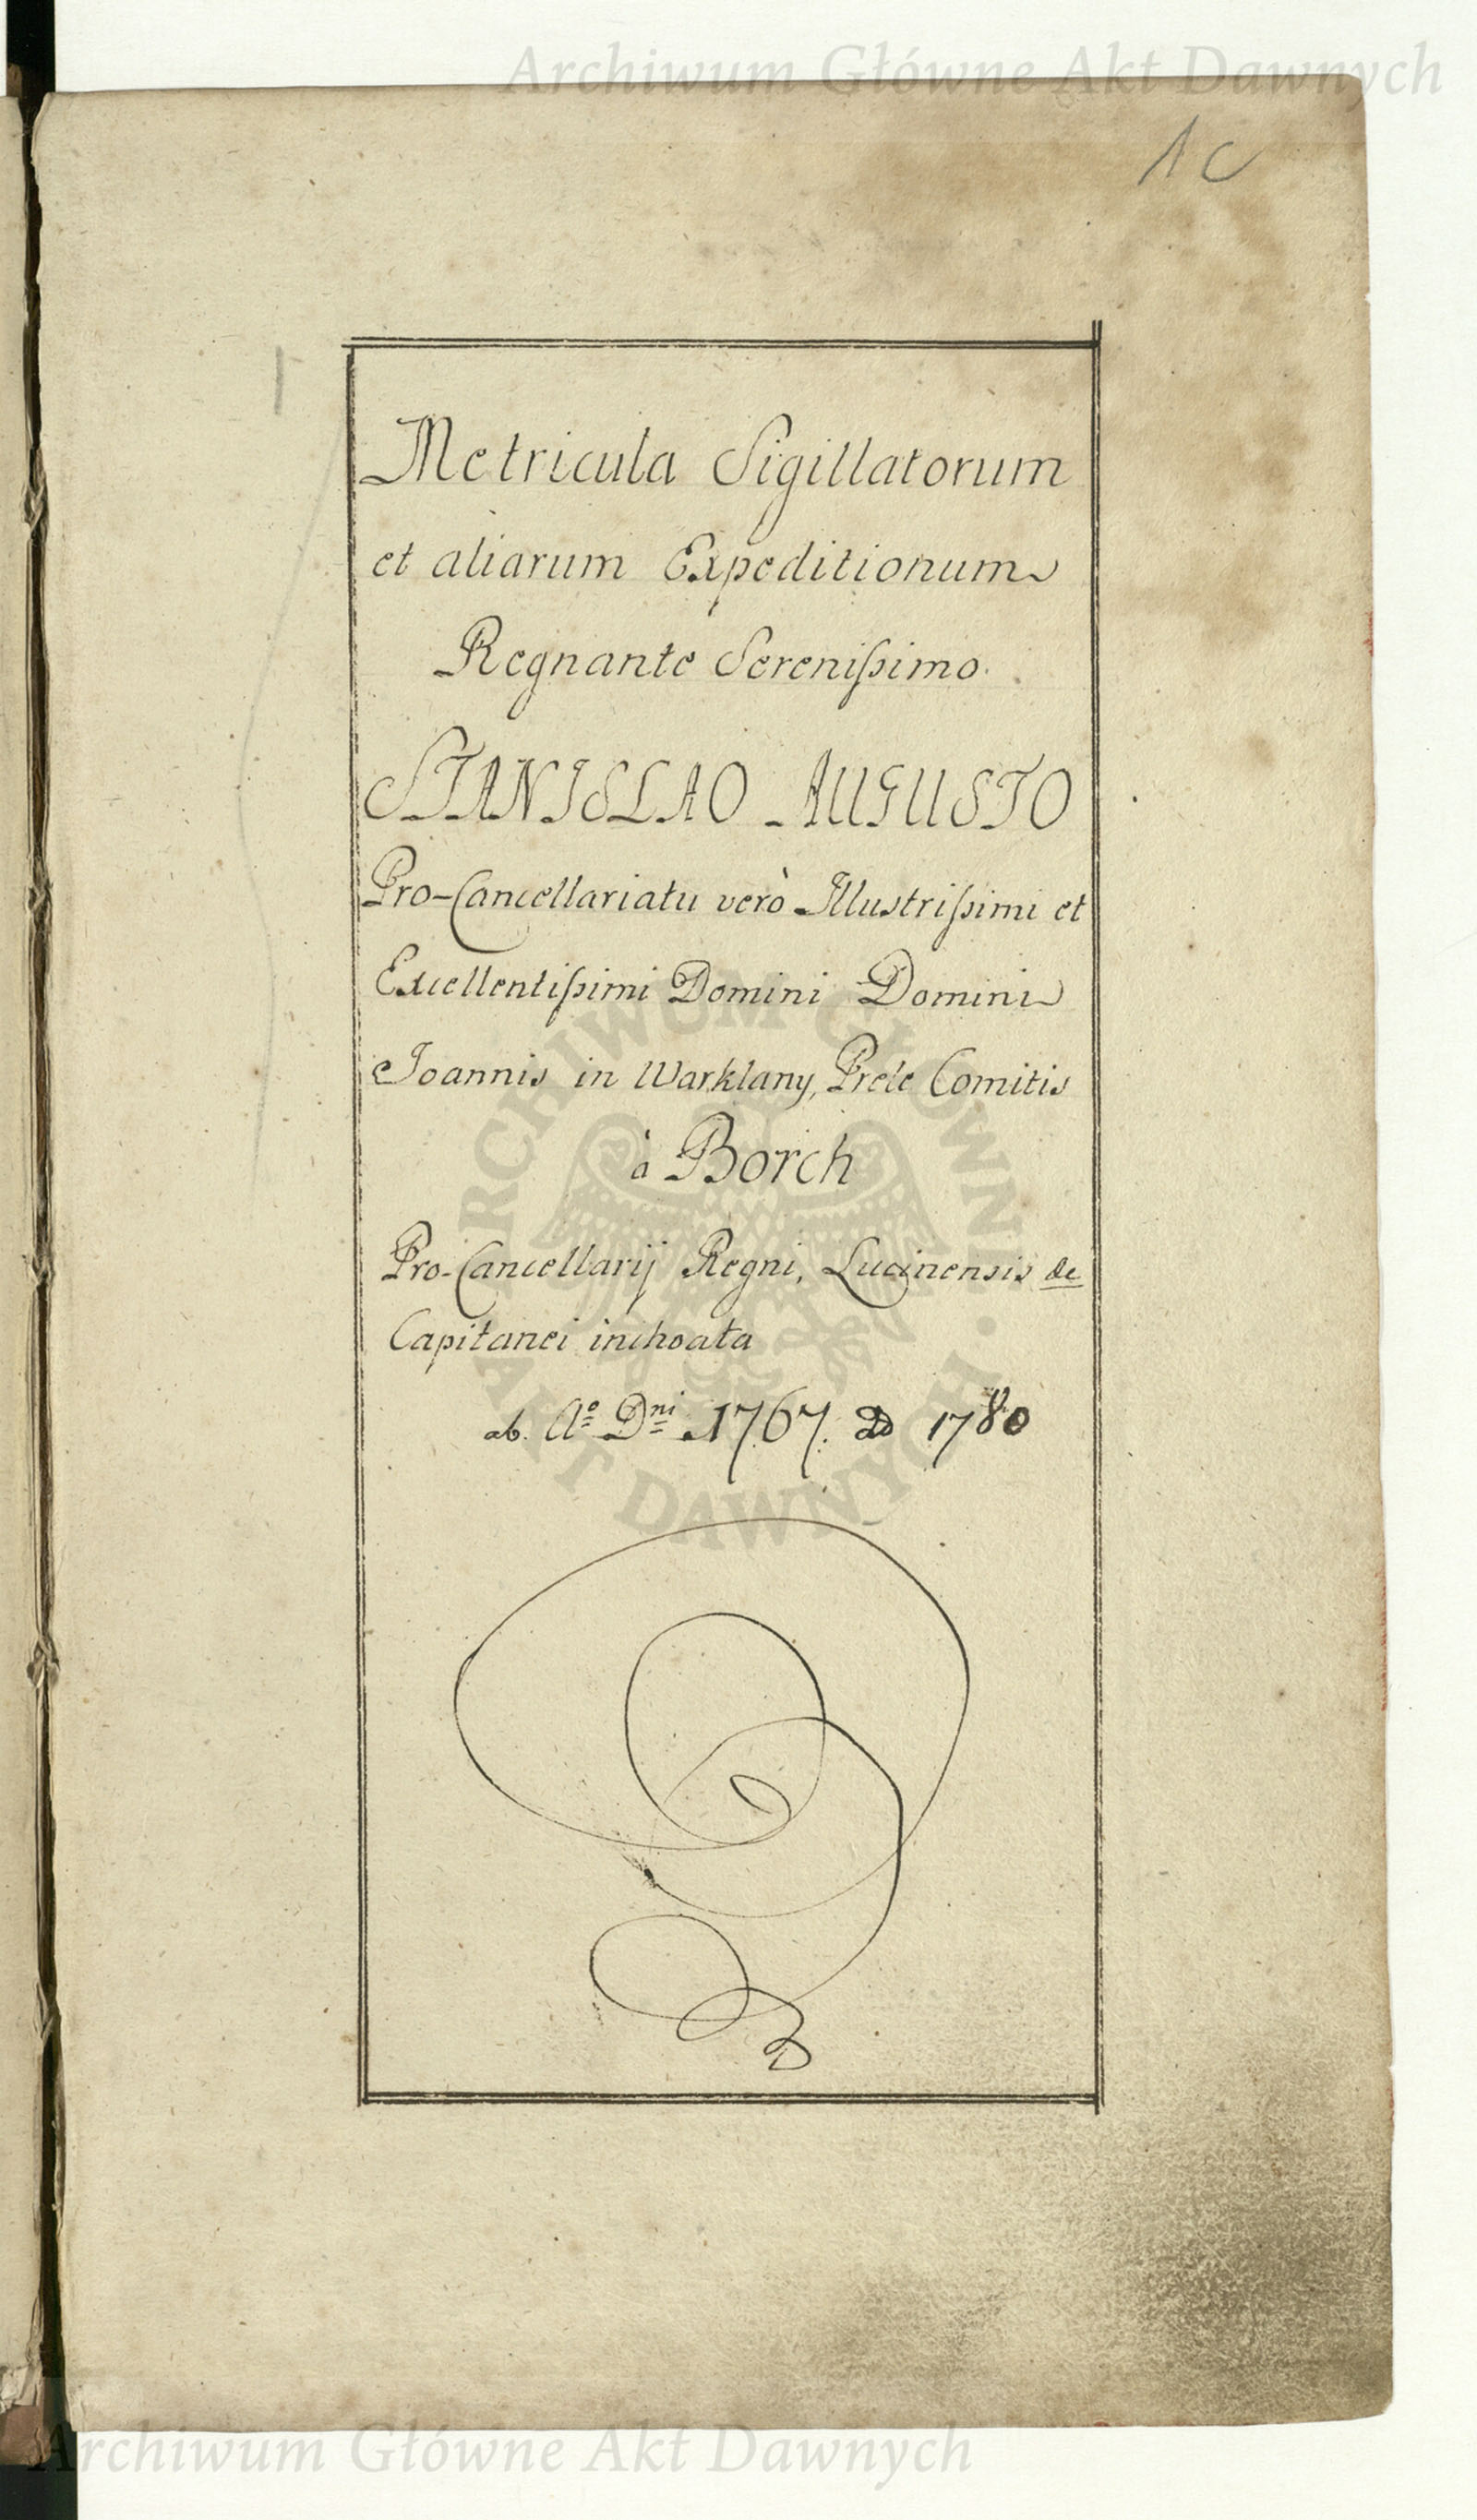 Archiwum Główne Akt Dawnych
1C
1
Metricula Sigillatorum
et aliarum Expeditionum
Regnante Serenißimo.
STANISLAO AUGUSTO
Pro-Cancellariatu verò Illustrißimi et
Excellentißimi Domini Domini
Joannis in Warklany, Prele Comitis
à Borch
Pro-Cancellarij Regni, Lucinensis &c
Capitanei inchoata
ab. Aº Dni 1767. ad 1780
ARCHIWUM GŁÓWNE AKT DAWNYCH
Archiwum Główne Akt Dawnych